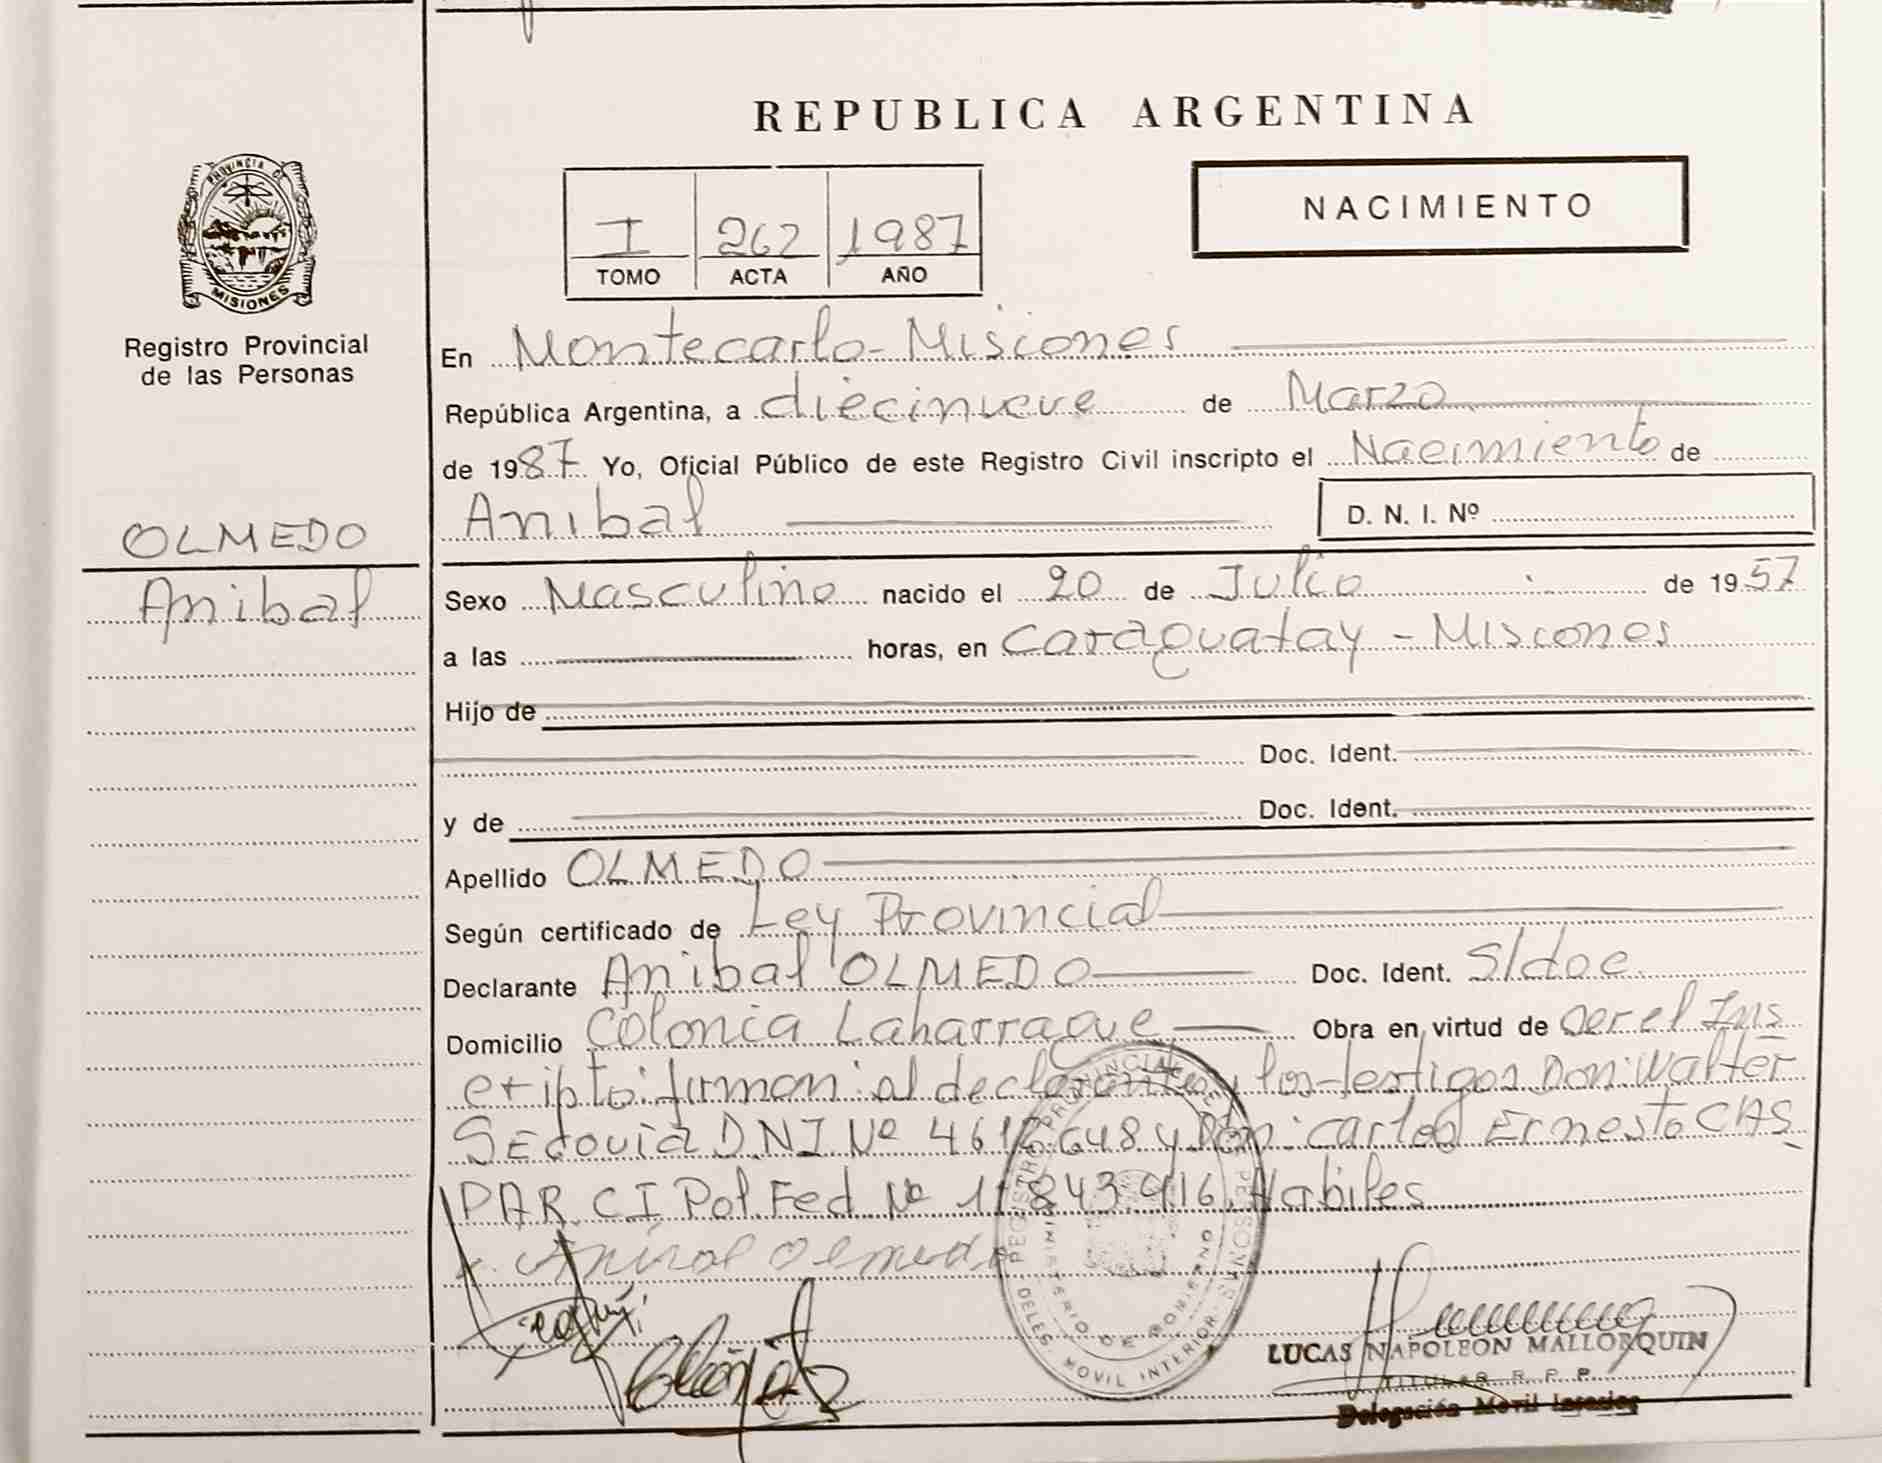 REPUBLICA ARGENTINA
PROVINCIA DE
MISIONES
Registro Provincial
de las Personas
NACIMIENTO
I 262 1987
TOMO ACTA AÑO
En Montecarlo - Misiones
República Argentina, a diecinueve de Marzo
de 1987 Yo, Oficial Público de este Registro Civil inscripto el Nacimiento de
Anibal D. N. I. Nº
OLMEDO
Anibal
Sexo Masculino nacido el 20 de Julio de 1957
a las horas, en Caraguatay - Misiones
Hijo de
Doc. Ident.
y de Doc. Ident.
Apellido OLMEDO
Según certificado de Ley Provincial
Declarante Anibal OLMEDO Doc. Ident. S/doc
Domicilio Colonia Laharrague Obra en virtud de ser el Ins
cripto: firman: al declarante y los testigos Don: Walter
SEGOVIA D.N.I. Nº y Don: Carlos Ernesto CAS
PAR. C I Pol. Fed Nº 11.843.916. Habiles
Anibal Olmedo
REGISTRO PROVINCIAL DE LAS PERSONAS
MINISTERIO DE GOBIERNO
DELEG. MOVIL INTERIOR
LUCAS NAPOLEON MALLORQUIN
TITULAR R. P. P.
Delegación Movil Interior